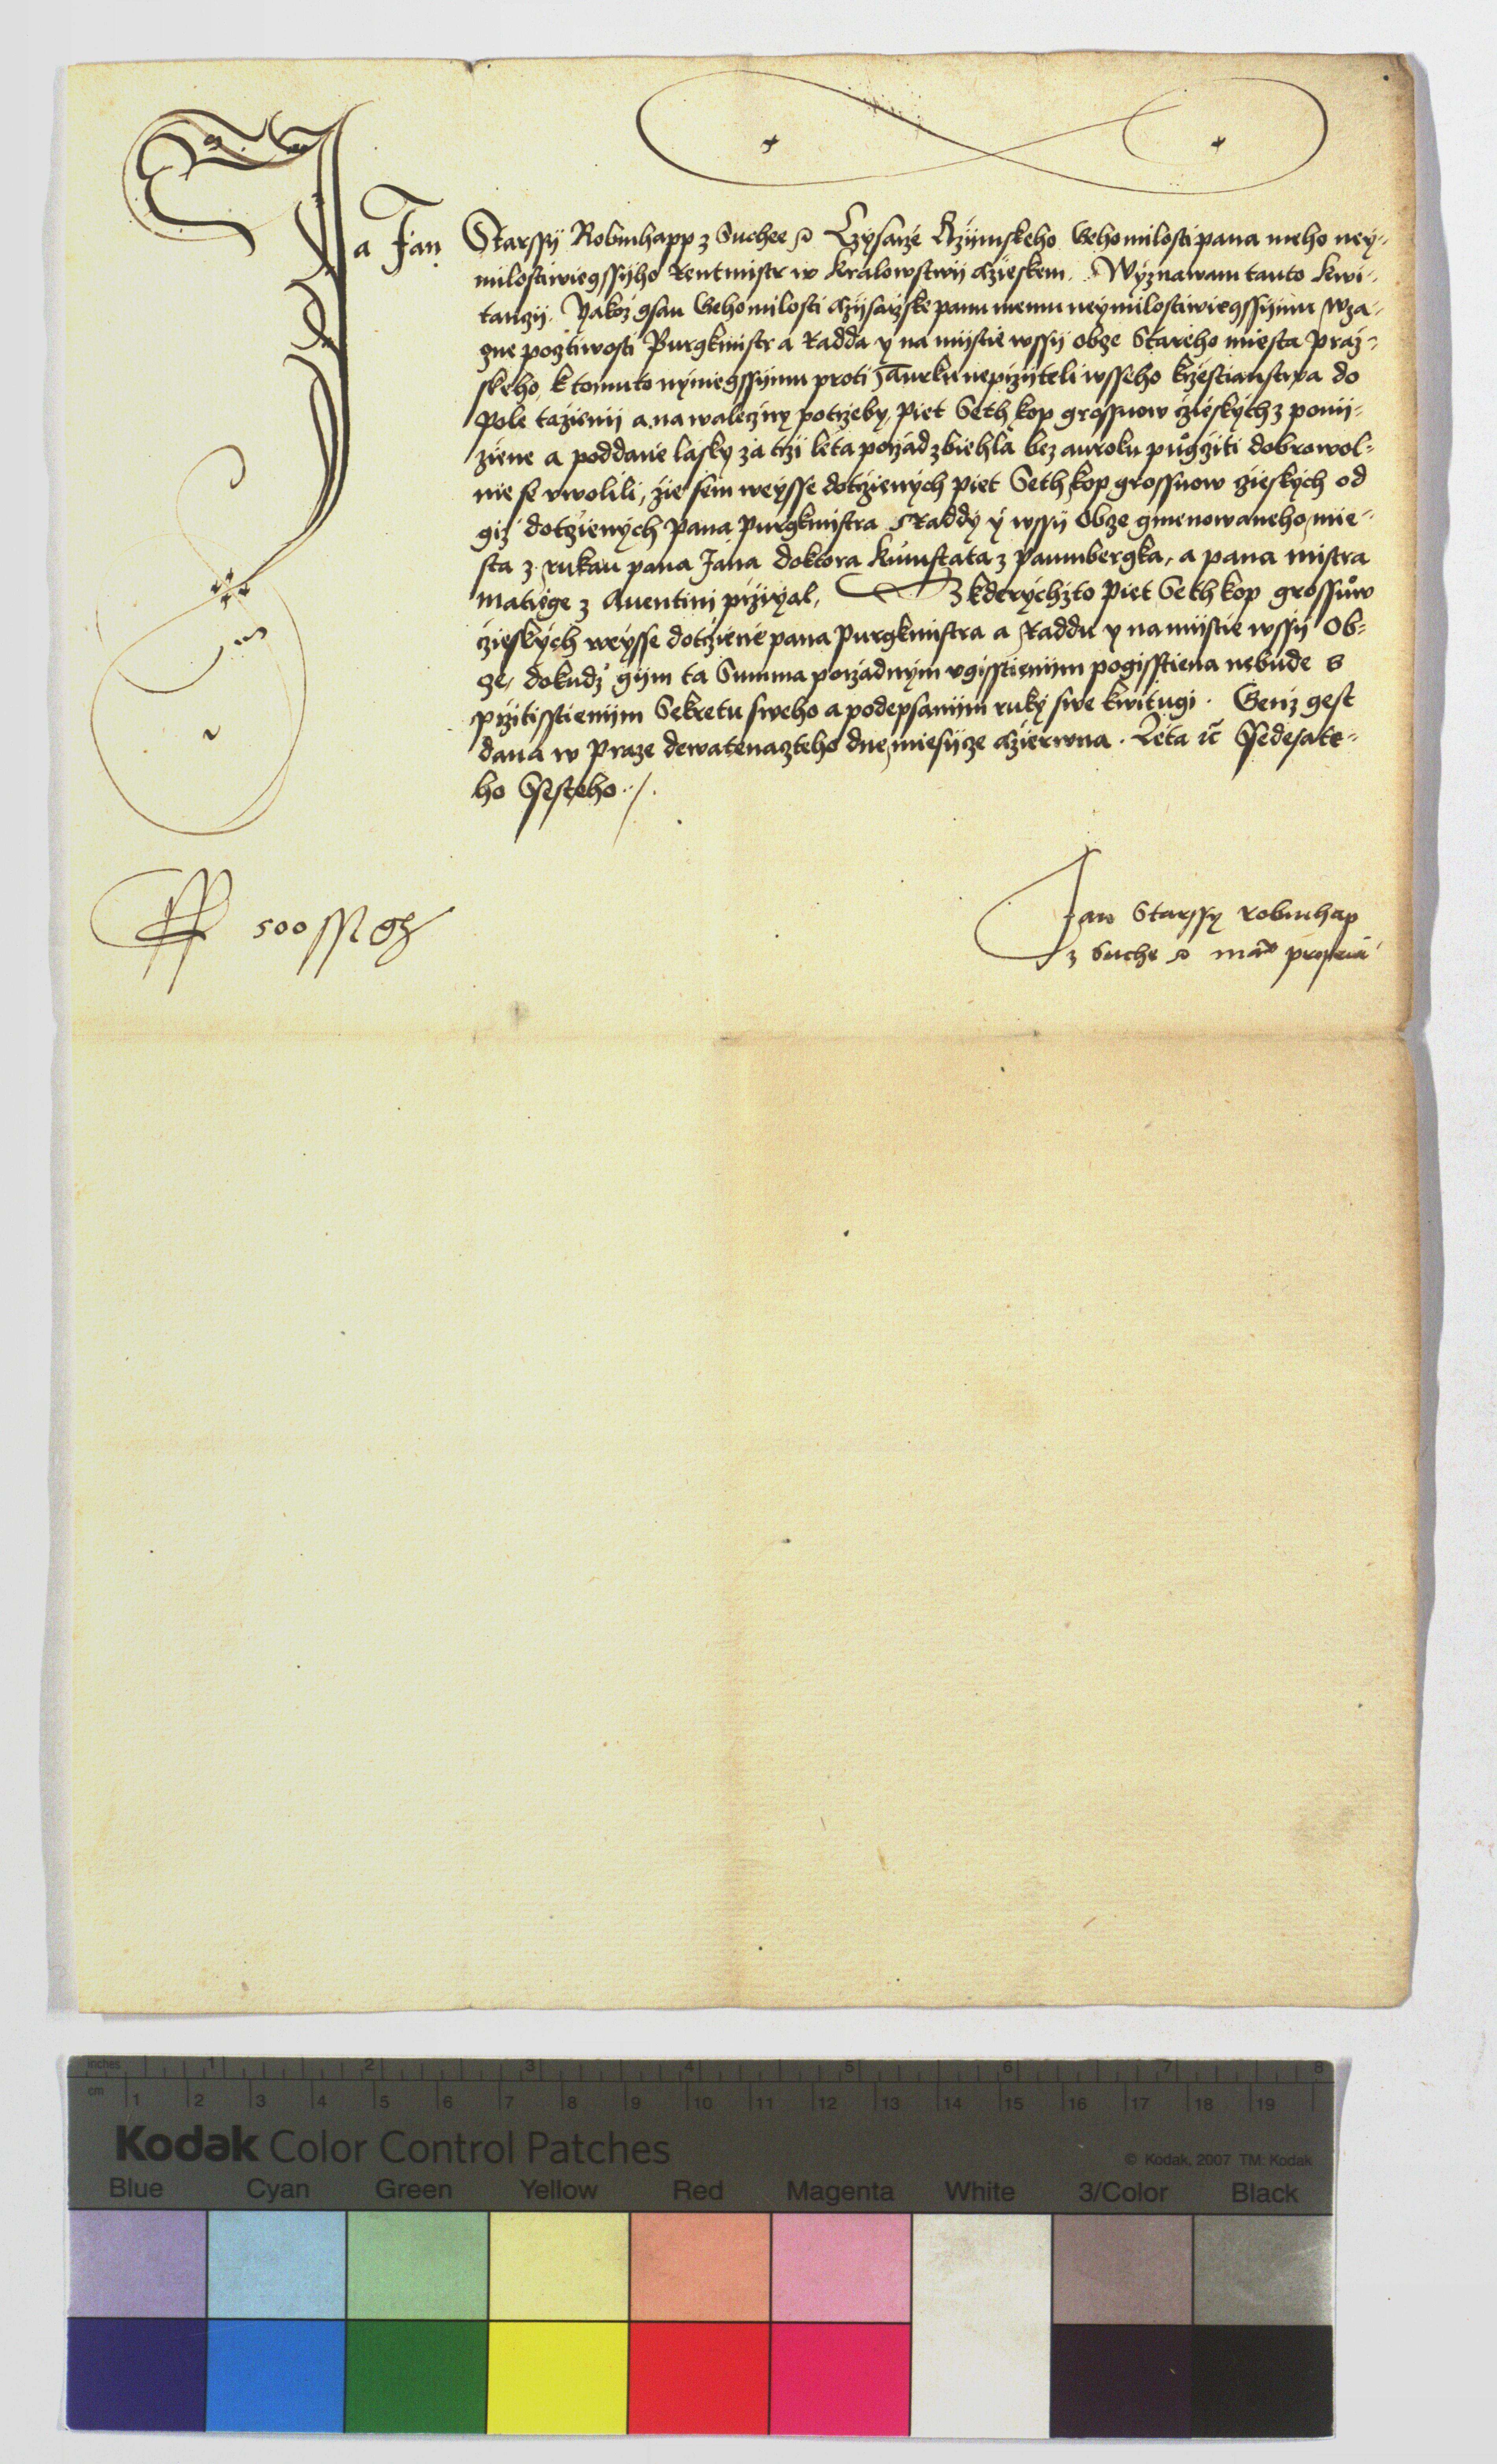 Ja Jan Starssij Robmhapp z Suchee Czysarže Ržijmskeho Gehomilosti pana meho ney-
milostiwiegssijho Rentmistr w Kralowstwij cžieskem. Wyznawam tauto kwi-
tanczij. Yakož gsau Gehomilosti czijsaržske panu memu neymilostiwiegssijmu wza-
zne pocztiwosti Purgkmistr a Radda y na mijstie wssij obcze Stareho miesta Praž-
skeho, k tomuto nyniegssijmu proti Turku nepržijteli wsseho kržestianstwa do
Pole taženij a na walecžny potrzeby, Piet Seth kop grossuow cžieskych z ponij-
žiene a poddane lasky za trži leta poržad zbiehla bez auroku pugcžiti dobrowol-
nie se uwolili, žie sem weysse dotcžienych Piet Seth kop grossuow cžieskych od
giž dotcžienych Pana Purgkmistra Raddy y wssij Obcze gmenowaneho mie-
sta z rukau pana Jana doktora Kumstata z Paumbergka, a pana mistra
Matiege z Auentini pržigal, Z kderychžto Piet Seth kop grossuw
cžieskych weysse dotcžiene pana Purgkmistra a Raddu y na mijstie wssij Ob-
cze, dokudž gijm ta Summa poržadnym ugisstienijm pogisstiena nebude s
pržitisstienijm Sekretu sweho a podepsanijm ruky swe kwitugi. Genž gest
dana w Praze dewatenaczteho dne miesijcze cžierwna. Leta ic Ssedesate-
ho Ssesteho ./.
500 ss gr
Jan Starssy Robmhap
z Suche manu propria
inches 1 2 3 4 5 6 7 8
cm 1 2 3 4 5 6 7 8 9 10 11 12 13 14 15 16 17 18 19
Kodak Color Control Patches
© Kodak, 2007 TM: Kodak
Blue Cyan Green Yellow Red Magenta White 3/Color Black